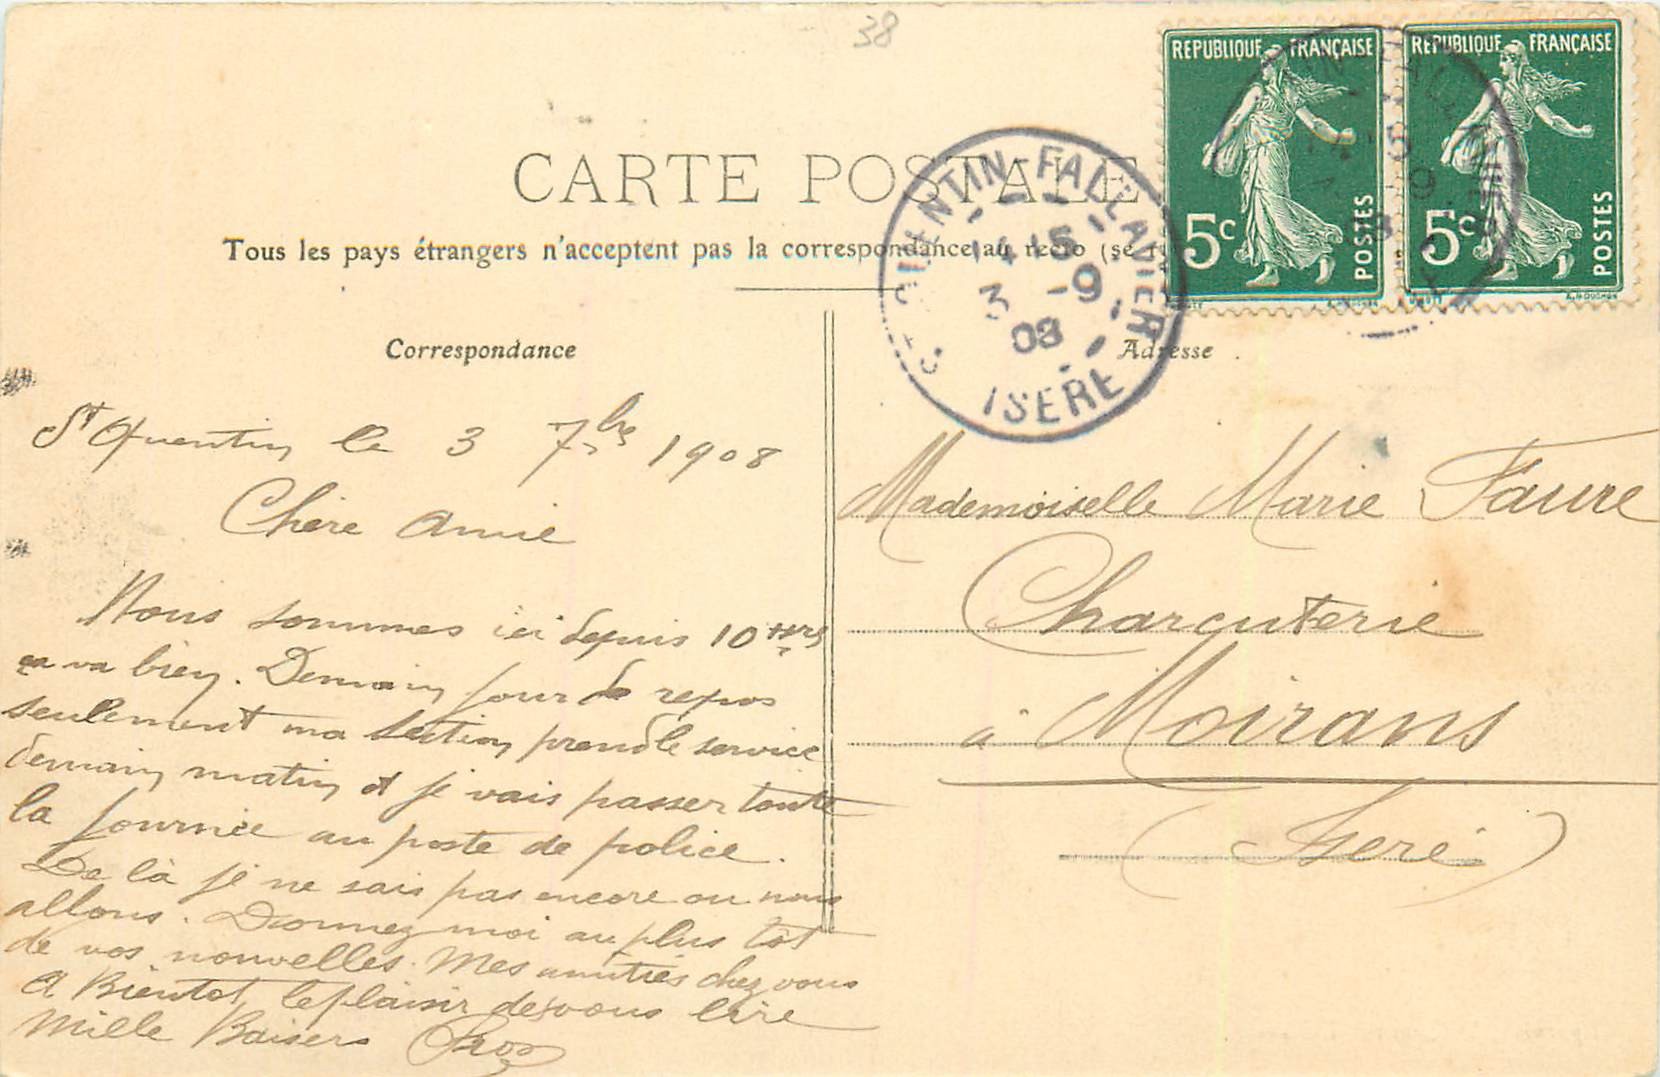 38
CARTE POSTALE
Tous les pays étrangers n'acceptent pas la correspondance au recto (se
REPUBLIQUE FRANÇAISE
5c
POSTES
REPUBLIQUE FRANÇAISE
5c
POSTES
ST QUENTIN-FALLAVIER
14 15
3 -9
08
ISERE
Correspondance
Adresse
St Quentin le 3 7bre 1908
Chère Amie
Nous sommes ici depuis 10 hres
ça va bien. Demain jour de repos
seulement ma section prend le service
demain matin et je vais passer toute
la journée au poste de police.
De là je ne sais pas encore ou nous
allons. Donnez moi au plus tôt
de vos nouvelles. Mes amitiés chez vous
A Bientot, le plaisir de vous lire
Mille Baisers
Mademoiselle Marie Faure
Charcuterie
à Moirans
(Isere)